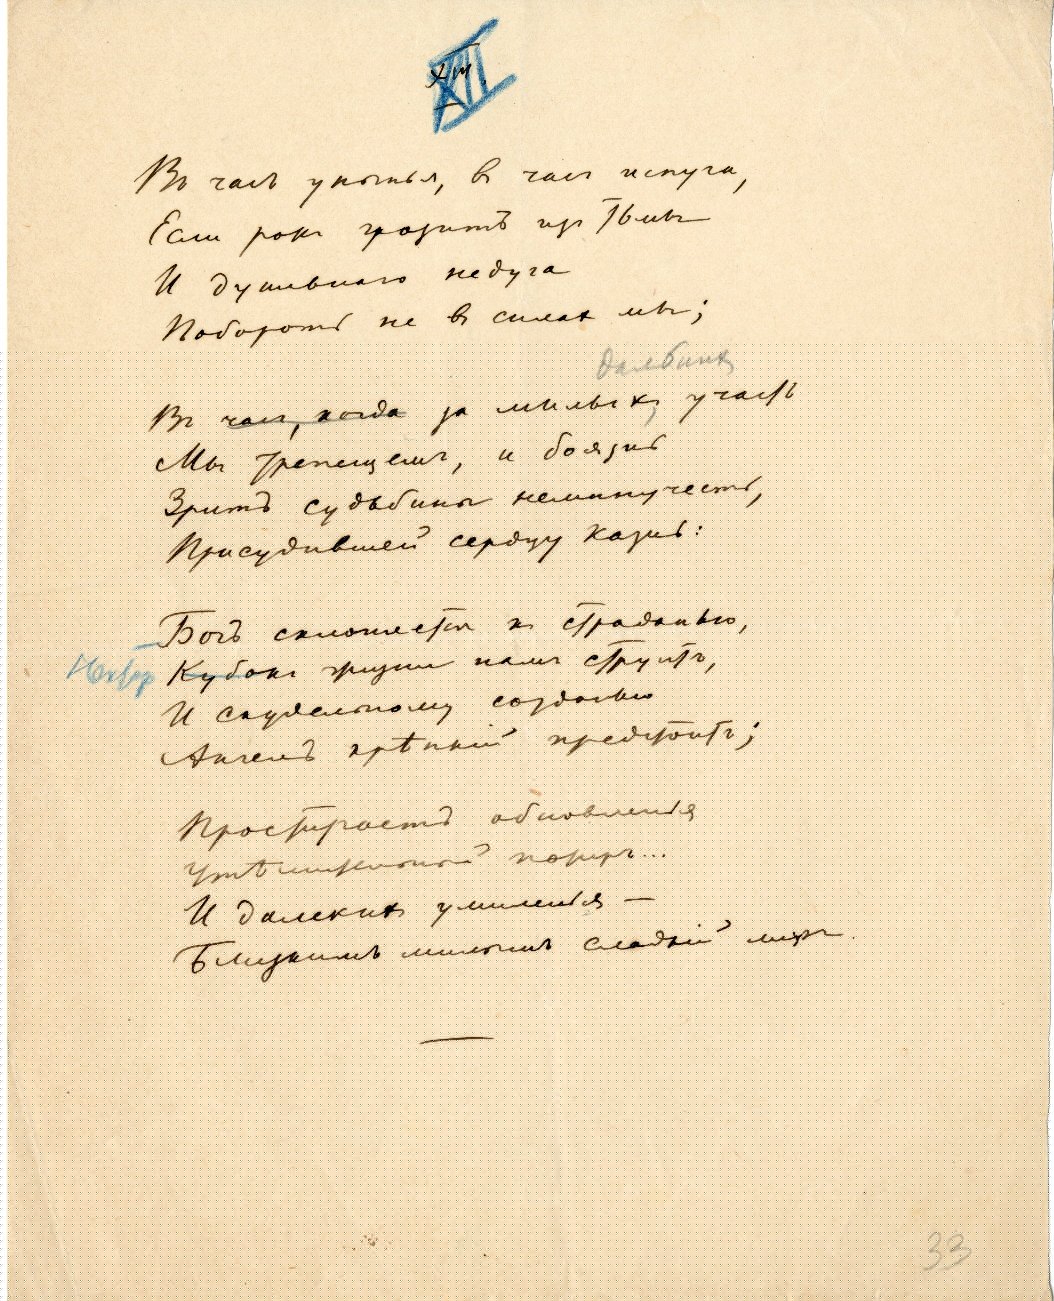 XIII.
XII
Въ часъ унынья, въ часъ испуга,
Если рокъ грозитъ изъ тьмы
И душевнаго недуга
Побороть не въ силах мы;
дальних
Въ часъ, когда за милых, участь
Мы трепещемъ, и боязнь
Зрить судьбины неминучесть,
Присудившей сердцу казнь:
Богъ склоняется къ страданью,
Нектар
Кубокъ жизни намъ струитъ,
И скудельному созданью
Ангелъ крѣпкій предстоитъ;
Простираетъ обновленья
Утѣшительный потиръ...
И далеких умиленья —
Близкимъ милымъ сладкій миръ.
33